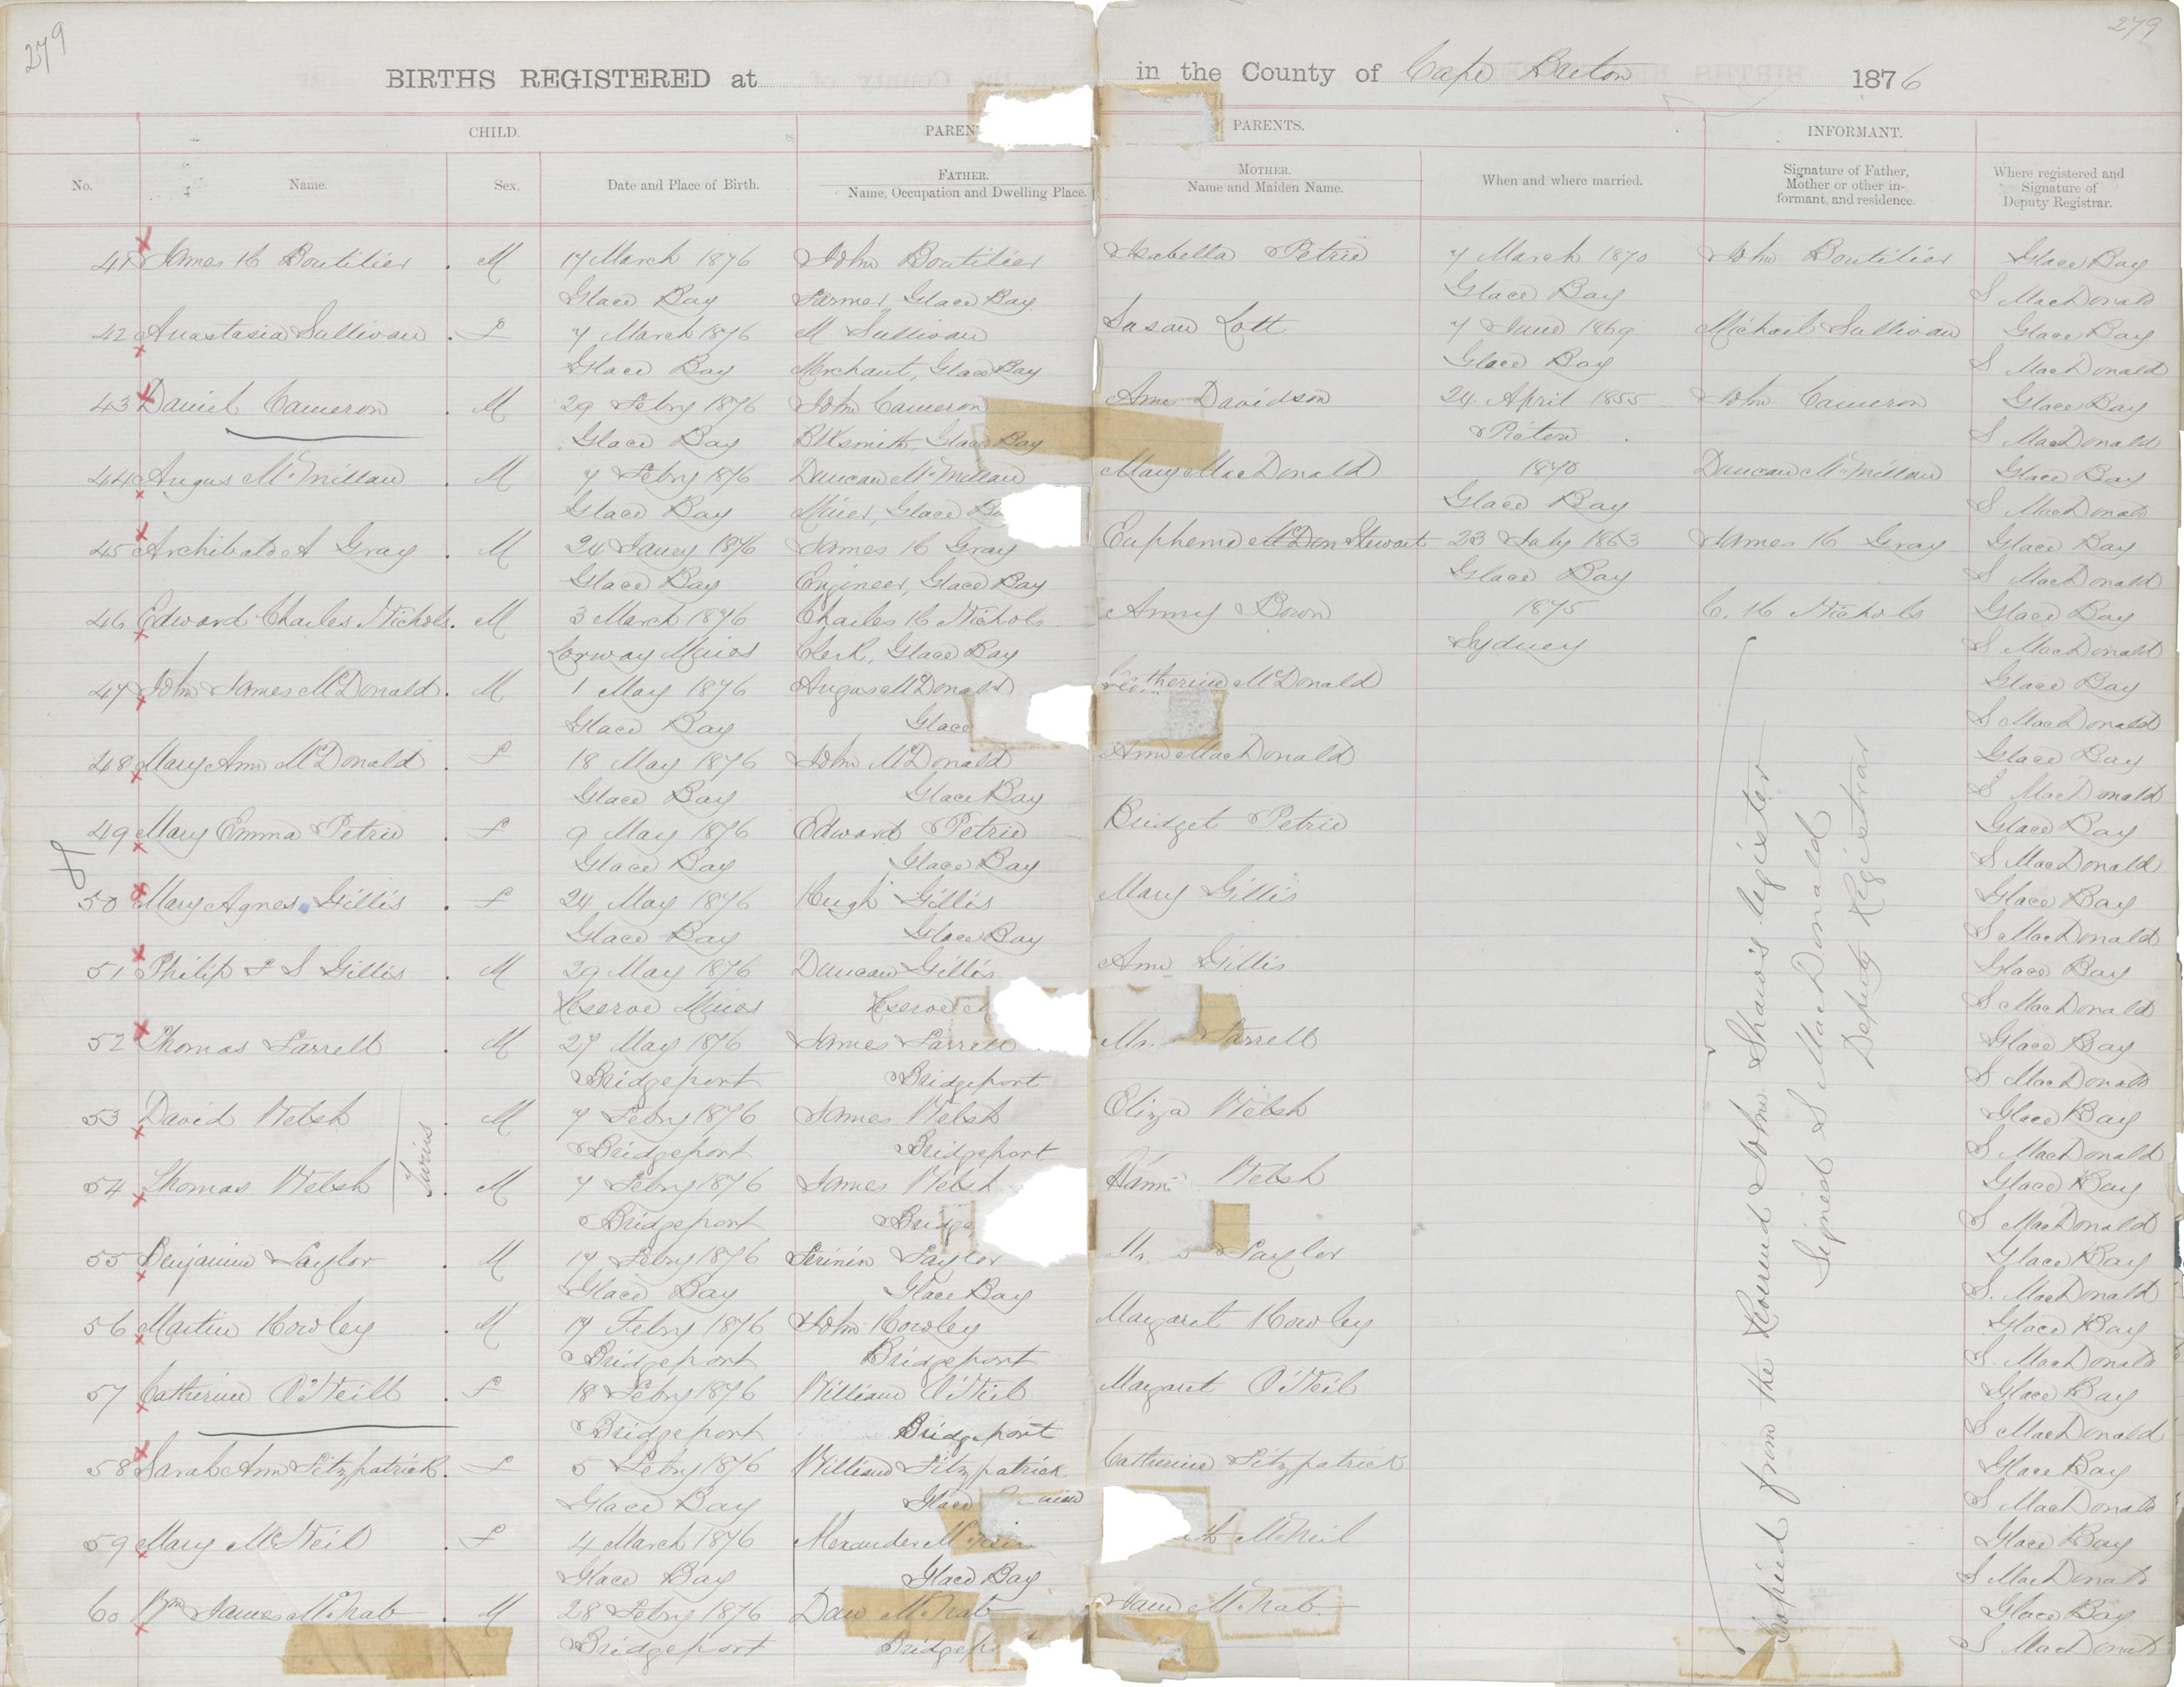 279
279
BIRTHS REGISTERED at
in the County of Cape Breton 1876
CHILD.
PAREN
PARENTS.
INFORMANT.
No.
Name.
Sex.
Date and Place of Birth.
FATHER.
Name, Occupation and Dwelling Place.
MOTHER.
Name and Maiden Name.
When and where married.
Signature of Father, Mother or other informant, and residence.
Where registered and Signature of Deputy Registrar.
41 James H Boutilier . M 17 March 1876 John Boutilier Isabella Petrie 7 March 1870 John Boutilier Glace Bay
Glace Bay Farmer, Glace Bay Glace Bay S MacDonald
42 Anastasia Sullivan . F 7 March 1876 M Sullivan Susan Lott 7 1869 Michael Sullivan Glace Bay
Glace Bay Merchant, Glace Bay Glace Bay S MacDonald
43 Daniel Cameron . M 29 Febry 1876 John Cameron Ann Davidson 24 April 1855 John Cameron Glace Bay
Glace Bay Blksmith, Glace Bay Pictou S MacDonald
44 Angus McMillan . M 7 Febry 1876 Duncan McMillan Mary MacDonald 1870 Duncan McMillan Glace Bay
Glace Bay Miner, Glace Ba Glace Bay S MacDonald
45 Archibald A Gray . M 24 Janey 1876 James H Gray Eupheme Stewart 23 July 1863 James H Gray Glace Bay
Glace Bay Engineer, Glace Bay Glace Bay S MacDonald
46 Edward Charles Nichols . M 3 March 1876 Charles H Nichols Anny Bown 1875 C. H Nichols Glace Bay
Lorway Mines Clerk, Glace Bay Sydney S MacDonald
47 John James McDonald . M 1 May 1876 Angus McDonald Catherine McDonald Glace Bay
Glace Bay Glace S MacDonald
48 Mary Ann McDonald . F 18 May 1876 John McDonald Ann MacDonald Glace Bay
Glace Bay Glace Bay S MacDonald
49 Mary Emma Petrie . F 9 May 1876 Edward Petrie Bridget Petrie Glace Bay
Glace Bay Glace Bay S MacDonald
50 Mary Agnes Gillis . F 24 May 1876 Hugh Gillis Mary Gillis Glace Bay
Glace Bay Glace Bay S MacDonald
51 Philip F S Gillis . M 29 May 1876 Duncan Gillis Ann Gillis Glace Bay
Reserve Mines Reserve S MacDonald
52 Thomas Farrell . M 27 May 1876 James Farrell Farrell Glace Bay
Bridgeport Bridgeport S MacDonald
53 David Welsh . M 7 Febry 1876 James Welsh Eliza Welsh Glace Bay
Twins
Bridgeport Bridgeport S MacDonald
54 Thomas Welsh . M 7 Febry 1876 James Welsh Welsh Glace Bay
Bridgeport Bridge S MacDonald
55 Benjamin Taylor . M 17 Febry 1876 Taylor Taylor Glace Bay
Glace Bay Glace Bay S. MacDonald
56 Martin Howley . M 17 Febry 1876 John Howley Margaret Howley Glace Bay
Bridgeport Bridgeport S. MacDonald
57 Catherine O'Neill . F 18 Febry 1876 William O'Neil Margaret O'Neil Glace Bay
Bridgeport Bridgeport S MacDonald
58 Sarah Ann Fitzpatrick . F 5 Febry 1876 William Fitzpatrick Catherine Fitzpatrick Glace Bay
Glace Bay Glace S MacDonald
59 Mary McNeil . F 4 March 1876 Alexander McNeil Glace Bay
Glace Bay Glace Bay S MacDonald
60 Wm James McNab . M 28 Febry 1876 Dan McNab McNab Glace Bay
Bridgeport Bridgep S MacDonald
Copied from the Reverend John Shaw's register
Signed S MacDonald
Deputy Registrar